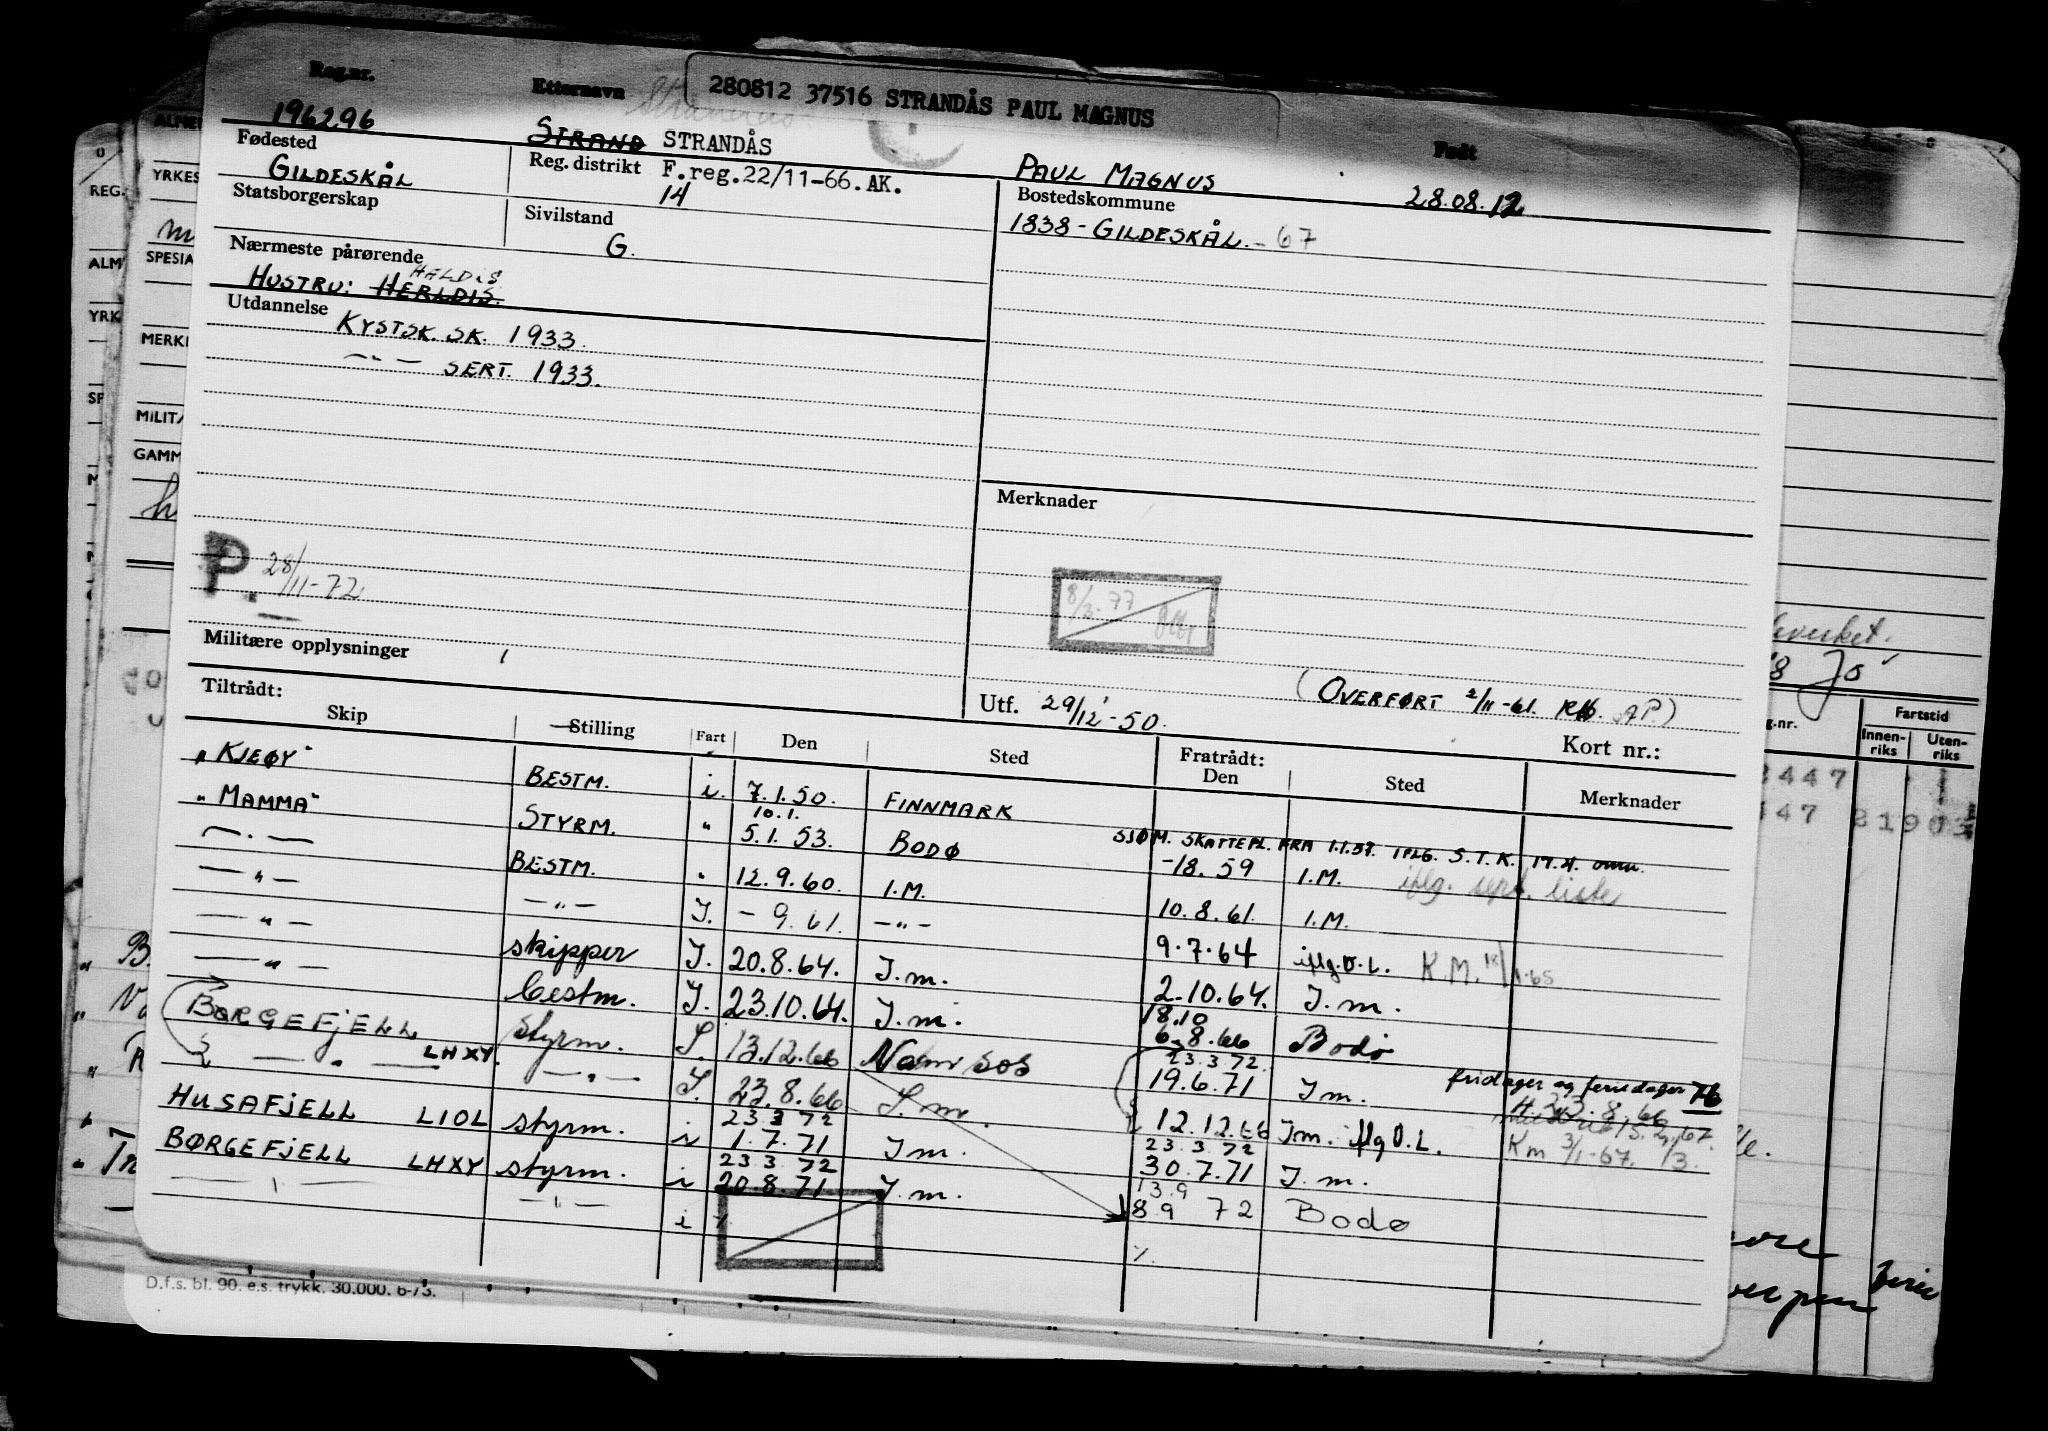 280812 37516 STRANDÅS PAUL MAGNUS
Reg.nr. Etternavn Født
196296 STRAND STRANDÅS PAUL MAGNUS 28.08.12
Fødested Reg. distrikt F.reg.22/11-66.AK. Bostedskommune
GILDESKÅL 14 1838-GILDESKÅL. - 67
Statsborgerskap Sivilstand
G.
Nærmeste pårørende
HALDIS
HUSTRU: HERLDIS.
Utdannelse
KYSTSK. SK. 1933.
— " — SERT. 1933.
Merknader
P. 28/11-72
8/3-77
Militære opplysninger
(OVERFØRT 2/11-61. AP)
Tiltrådt: Utf. 29/12-50. Kort nr.:
Skip Stilling Fart Den Sted Fratrådt: Den Sted Merknader
"KJEØY" BESTM. i. 7.1.50. FINNMARK
10.1. SJØM. SKATTEPL. FRA 1.1.57. IFLG. S.T.K. 17.4.
"MAMMA" STYRM. " 5.1.53. BODØ -18.59 I.M. iflg. liste
— " — BESTM. " 12.9.60. I.M. 10.8.61. I.M.
— " — — " — I. - 9.61. — " — 9.7.64 iflg.O.L. K.M. 18/1-65
— " — skipper I. 20.8.64. I.m. 2.10.64. I.m.
18.10
— " — bestm. I. 23.10.64. I.m. 6.8.66 Bodø
23.3.72.
BØRGEFJELL styrm. I. 13.12.66 Namsos 19.6.71 I m. fridager og feriedager 76
— " — LHXY. — " — I. 23.8.66 I.m. 12.12.66 I m. iflg O.L. Km 3/1-67.
23 3 72 23.3.72
HUSAFJELL LIOL styrm. i 1.7.71 I m. 30.7.71 I.m.
23.3.72 13.9
BØRGEFJELL LHXY styrm. i 20.8.71 I.m. 8 9 72 Bodø
— " — — " — i
D.f.s. bl. 90. e.s. trykk. 30.000. 6-73.
ALM
YRKES
REG.
SPESIA
YRK
MERK
MILITÆ
GAMM
Fartstid
Innen-riks Uten-riks